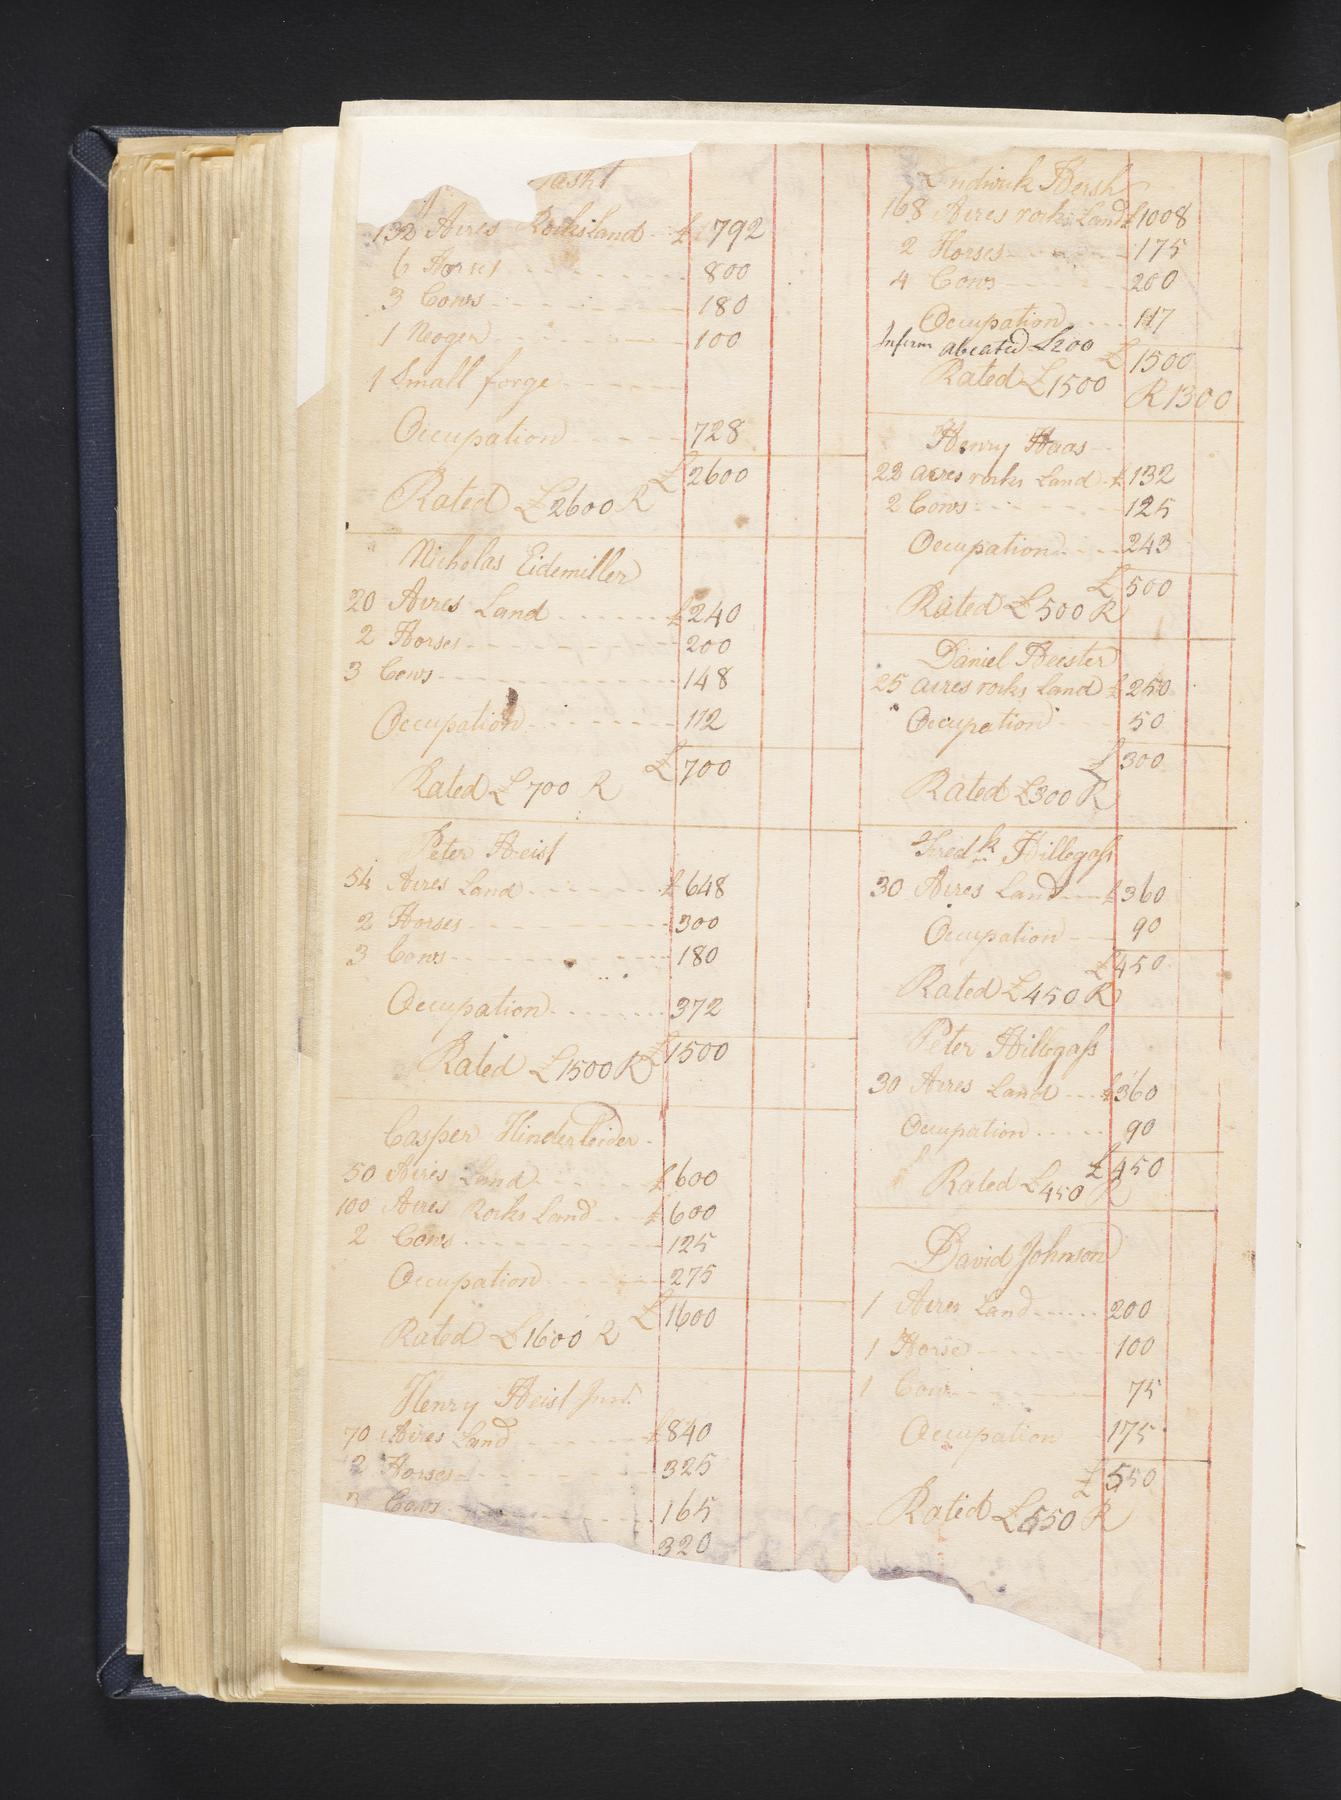 132 Acres Rocks land £ 792
6 Horses 800
3 Cows 180
1 Neoger 100
1 Small forge
Occupation 728
£ 2600
Rated £2600 R
Nicholas Eidemiller
20 Acres Land £240
2 Horses 200
3 Cows 148
Occupation 112
£ 700
Rated £ 700 R
Peter Heist
54 Acres Land £ 648
2 Horses 300
3 Cows 180
Occupation 372
£1500
Rated £1500 R
Casper Hinderleider
50 Acres Land £600
100 Acres Rocks Land £600
2 Cows 125
Occupation 275
£ 1600
Rated £1600 R
Henry Heist Junr.
70 Acres Land £840
2 Horses 325
3 Cows 165
320
Hersh
168 Acres rocks Land £1008
2 Horses 175
4 Cows 200
Occupation 117
Infirm abeated £200 £ 1500
Rated £1500 R1300
Henry Haas
22 acres rocks Land £132
2 Cows 125
Occupation 243
£ 500
Rated £500 R
Daniel Heester
25 acres rocks Land £ 250
Occupation 50
£ 300
Rated £300 R
Fredk Hillegass
30 Acres Land £360
Occupation 90
£450
Rated £450 R
Peter Hillegass
30 Acres Land £360
Occupation 90
£450
Rated £450 R
David Johnson
1 Acres Land 200
1 Horse 100
1 Cow 75
Occupation 175
£ 550
Rated £550 R